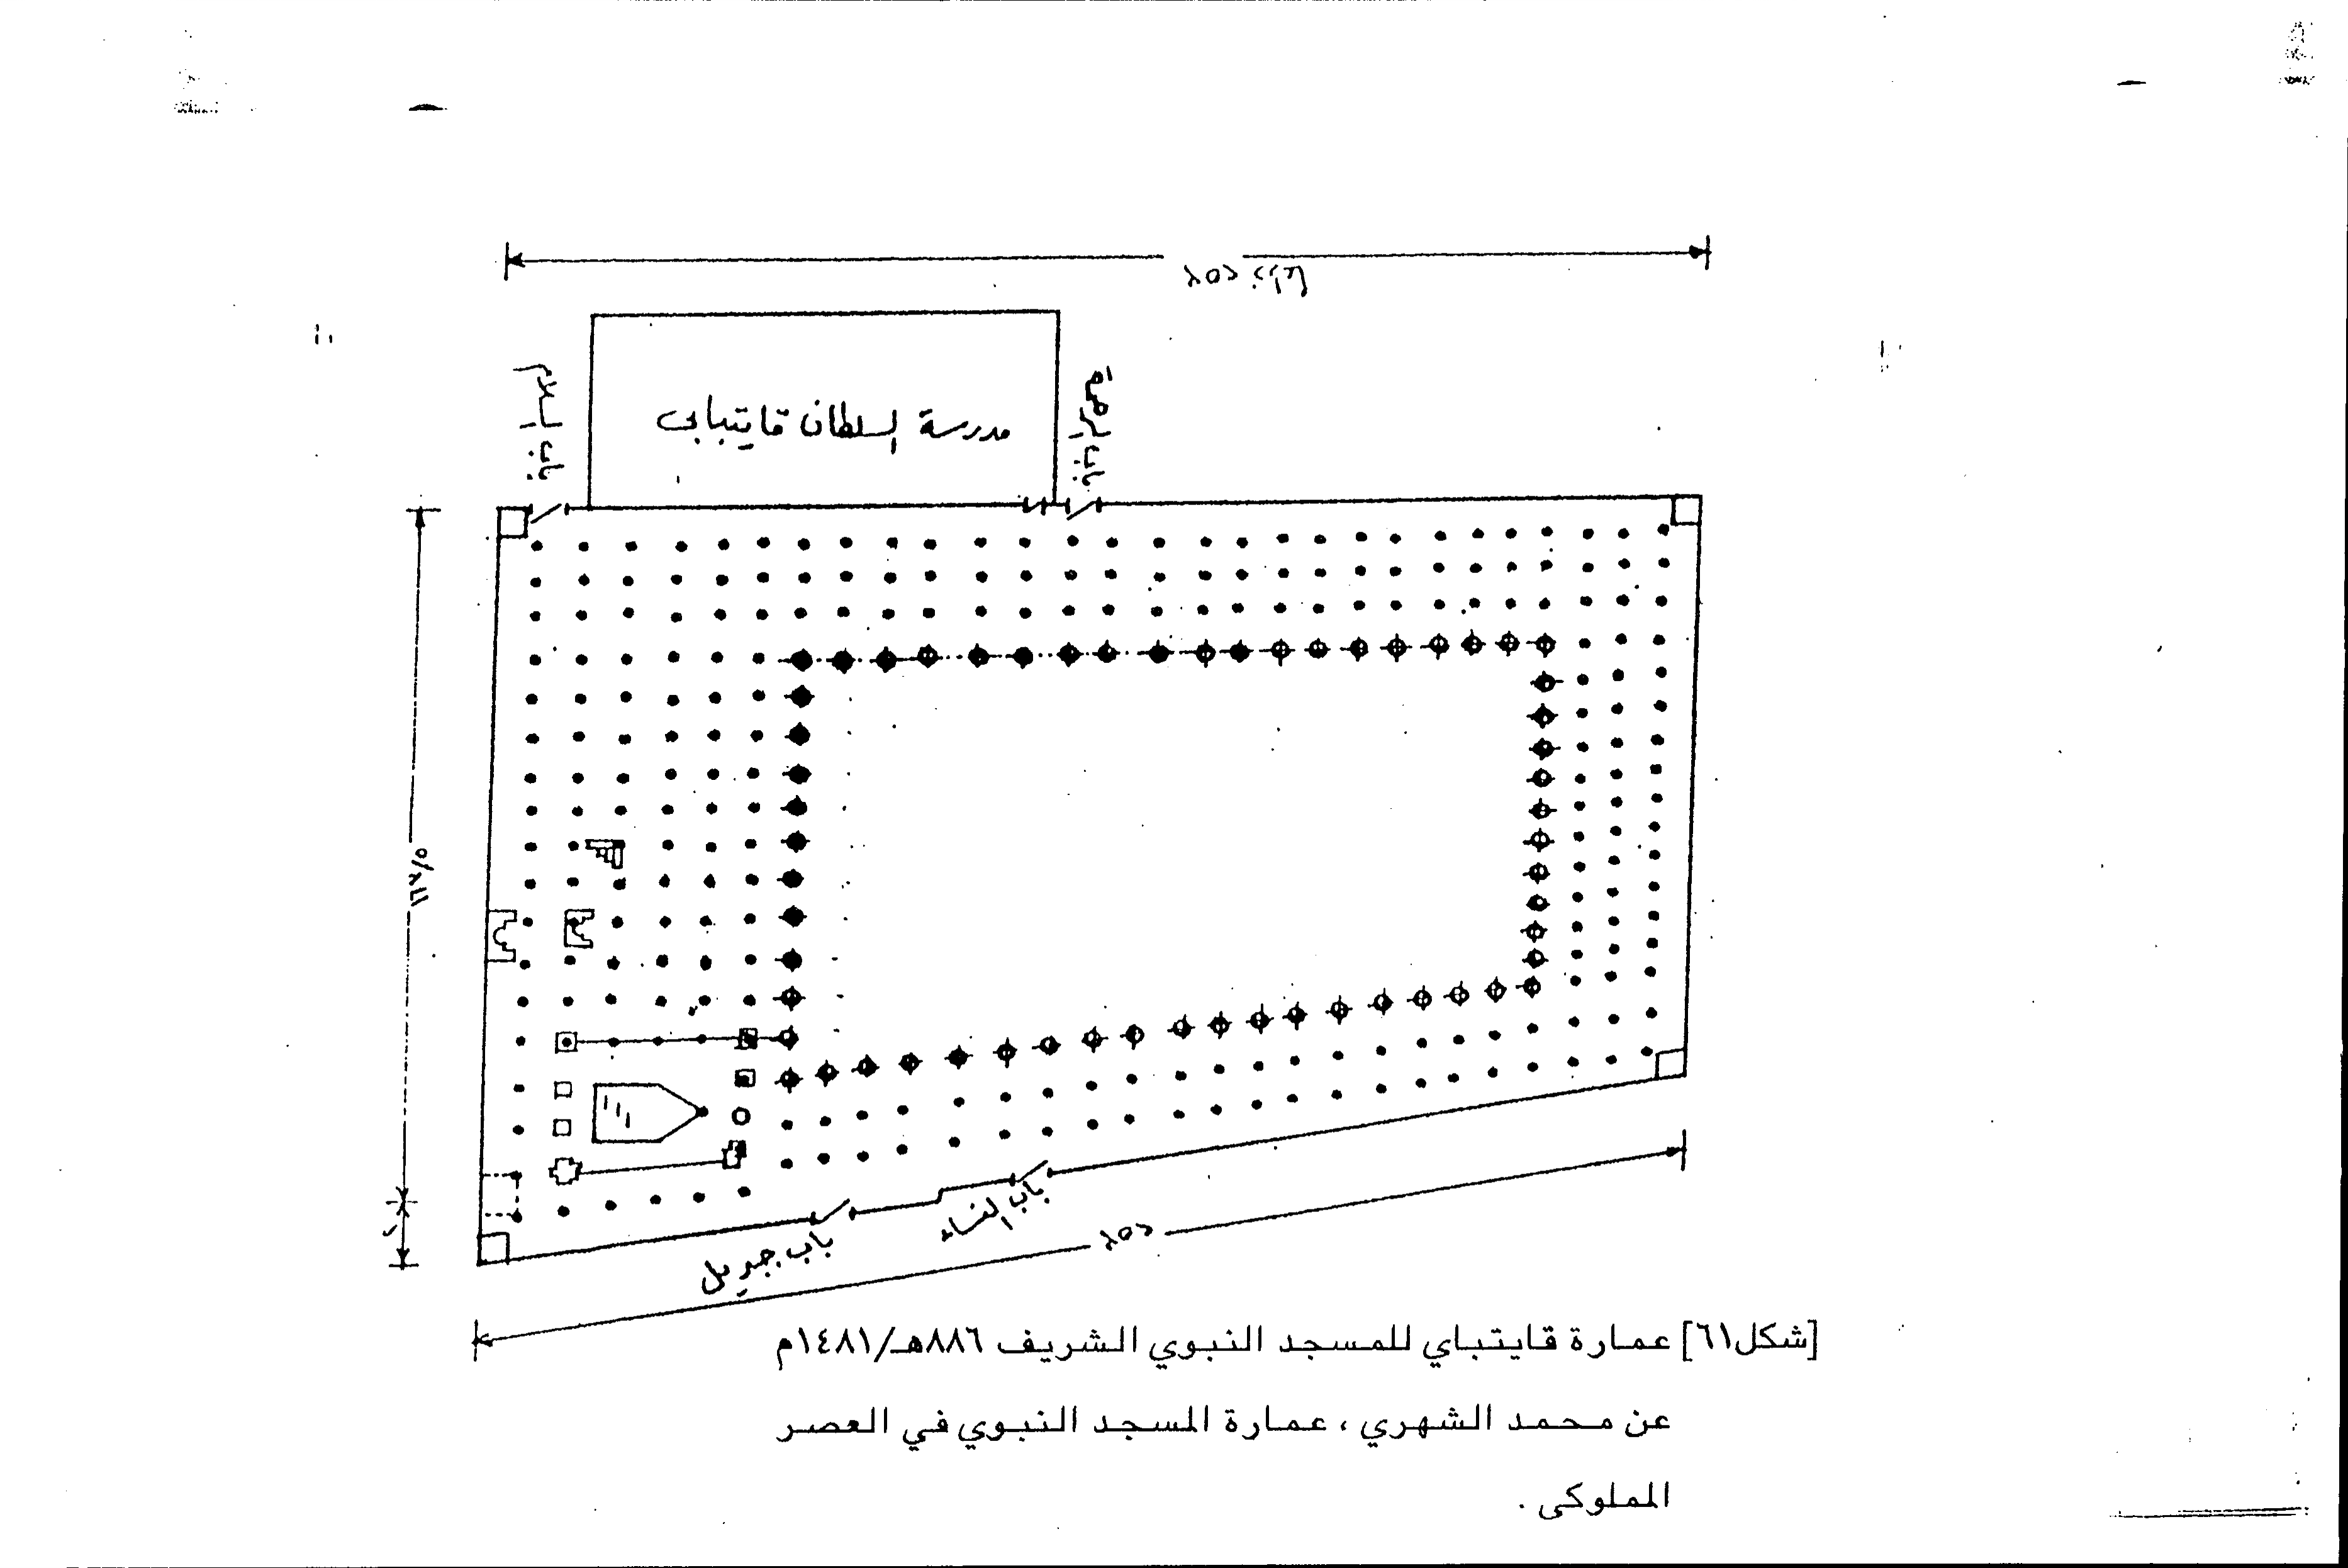 باب السلام
مدرسة السلطان قايتباى
باب الرحمة
باب النساء
باب جبريل
[شكل٦١] عمارة قايتباي للمسجد النبوي الشريف ٨٨٦هـ/١٤٨١م
عن محمد الشهري ، عمارة المسجد النبوي في العصر
المملوكى .